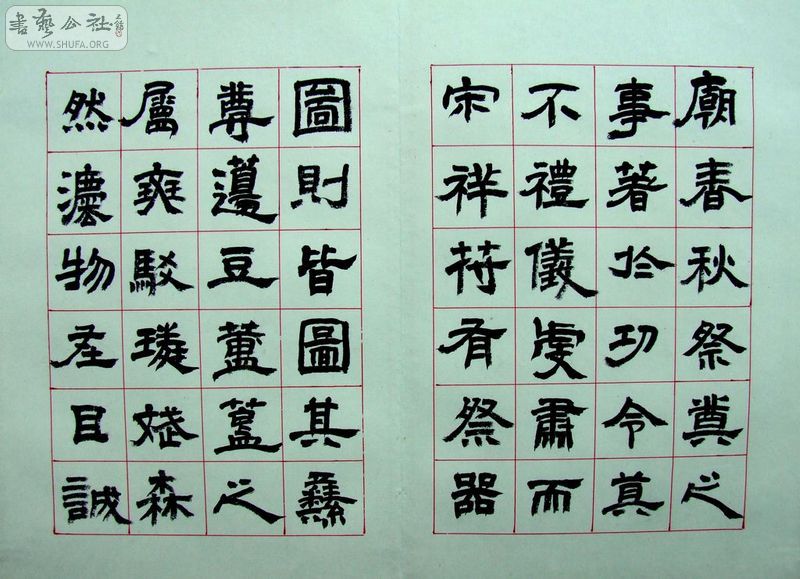 書藝公社
WWW.SHUFA.ORG
廟春秋祭奠之
事著於功令莫
不禮儀虔肅而
宋祥符有祭器
圖則皆圖其彝
尊籩豆簠簋之
屬爽駁璘斌森
然灋物在目誠